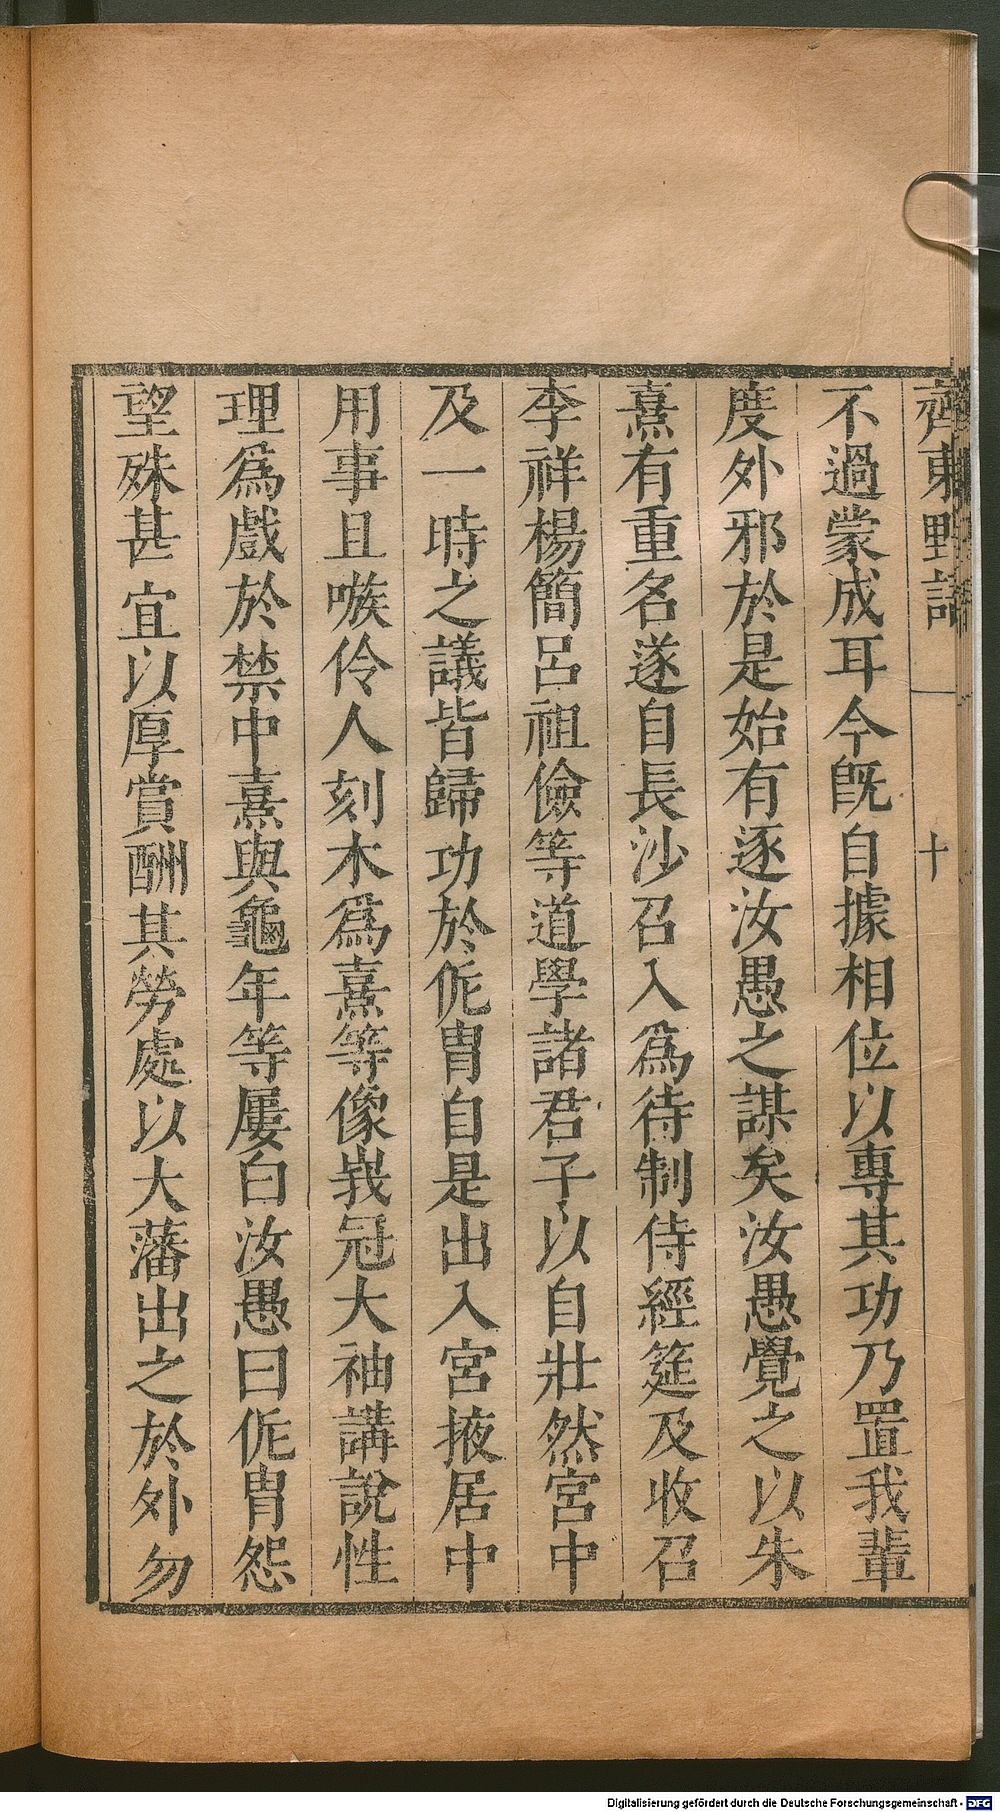 齊東野語 十
不過蒙成耳今旣自據相位以專其功乃置我輩
度外邪於是始有逐汝愚之謀矣汝愚覺之以朱
熹有重名遂自長沙召入爲待制侍經筵及收召
李祥楊簡呂祖儉等道學諸君子以自壯然宮中
及一時之議皆歸功於侂胄自是出入宮掖居中
用事且嗾伶人刻木爲熹等像峩冠大袖講說性
理爲戲於禁中熹與龜年等屢白汝愚曰侂胄怨
望殊甚宜以厚賞酬其勞處以大藩出之於外勿
Digitalisierung gefördert durch die Deutsche Forschungsgemeinschaft - DFG